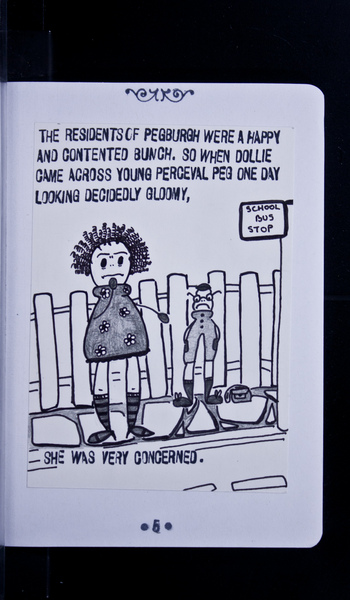 THE RESIDENTS OF PEGBURGH WERE A HAPPY
AND CONTENTED BUNCH. SO WHEN DOLLIE
CAME ACROSS YOUNG PERCEVAL PEG ONE DAY
LOOKING DECIDEDLY GLOOMY,
SCHOOL
BUS
STOP
SHE WAS VERY CONCERNED.